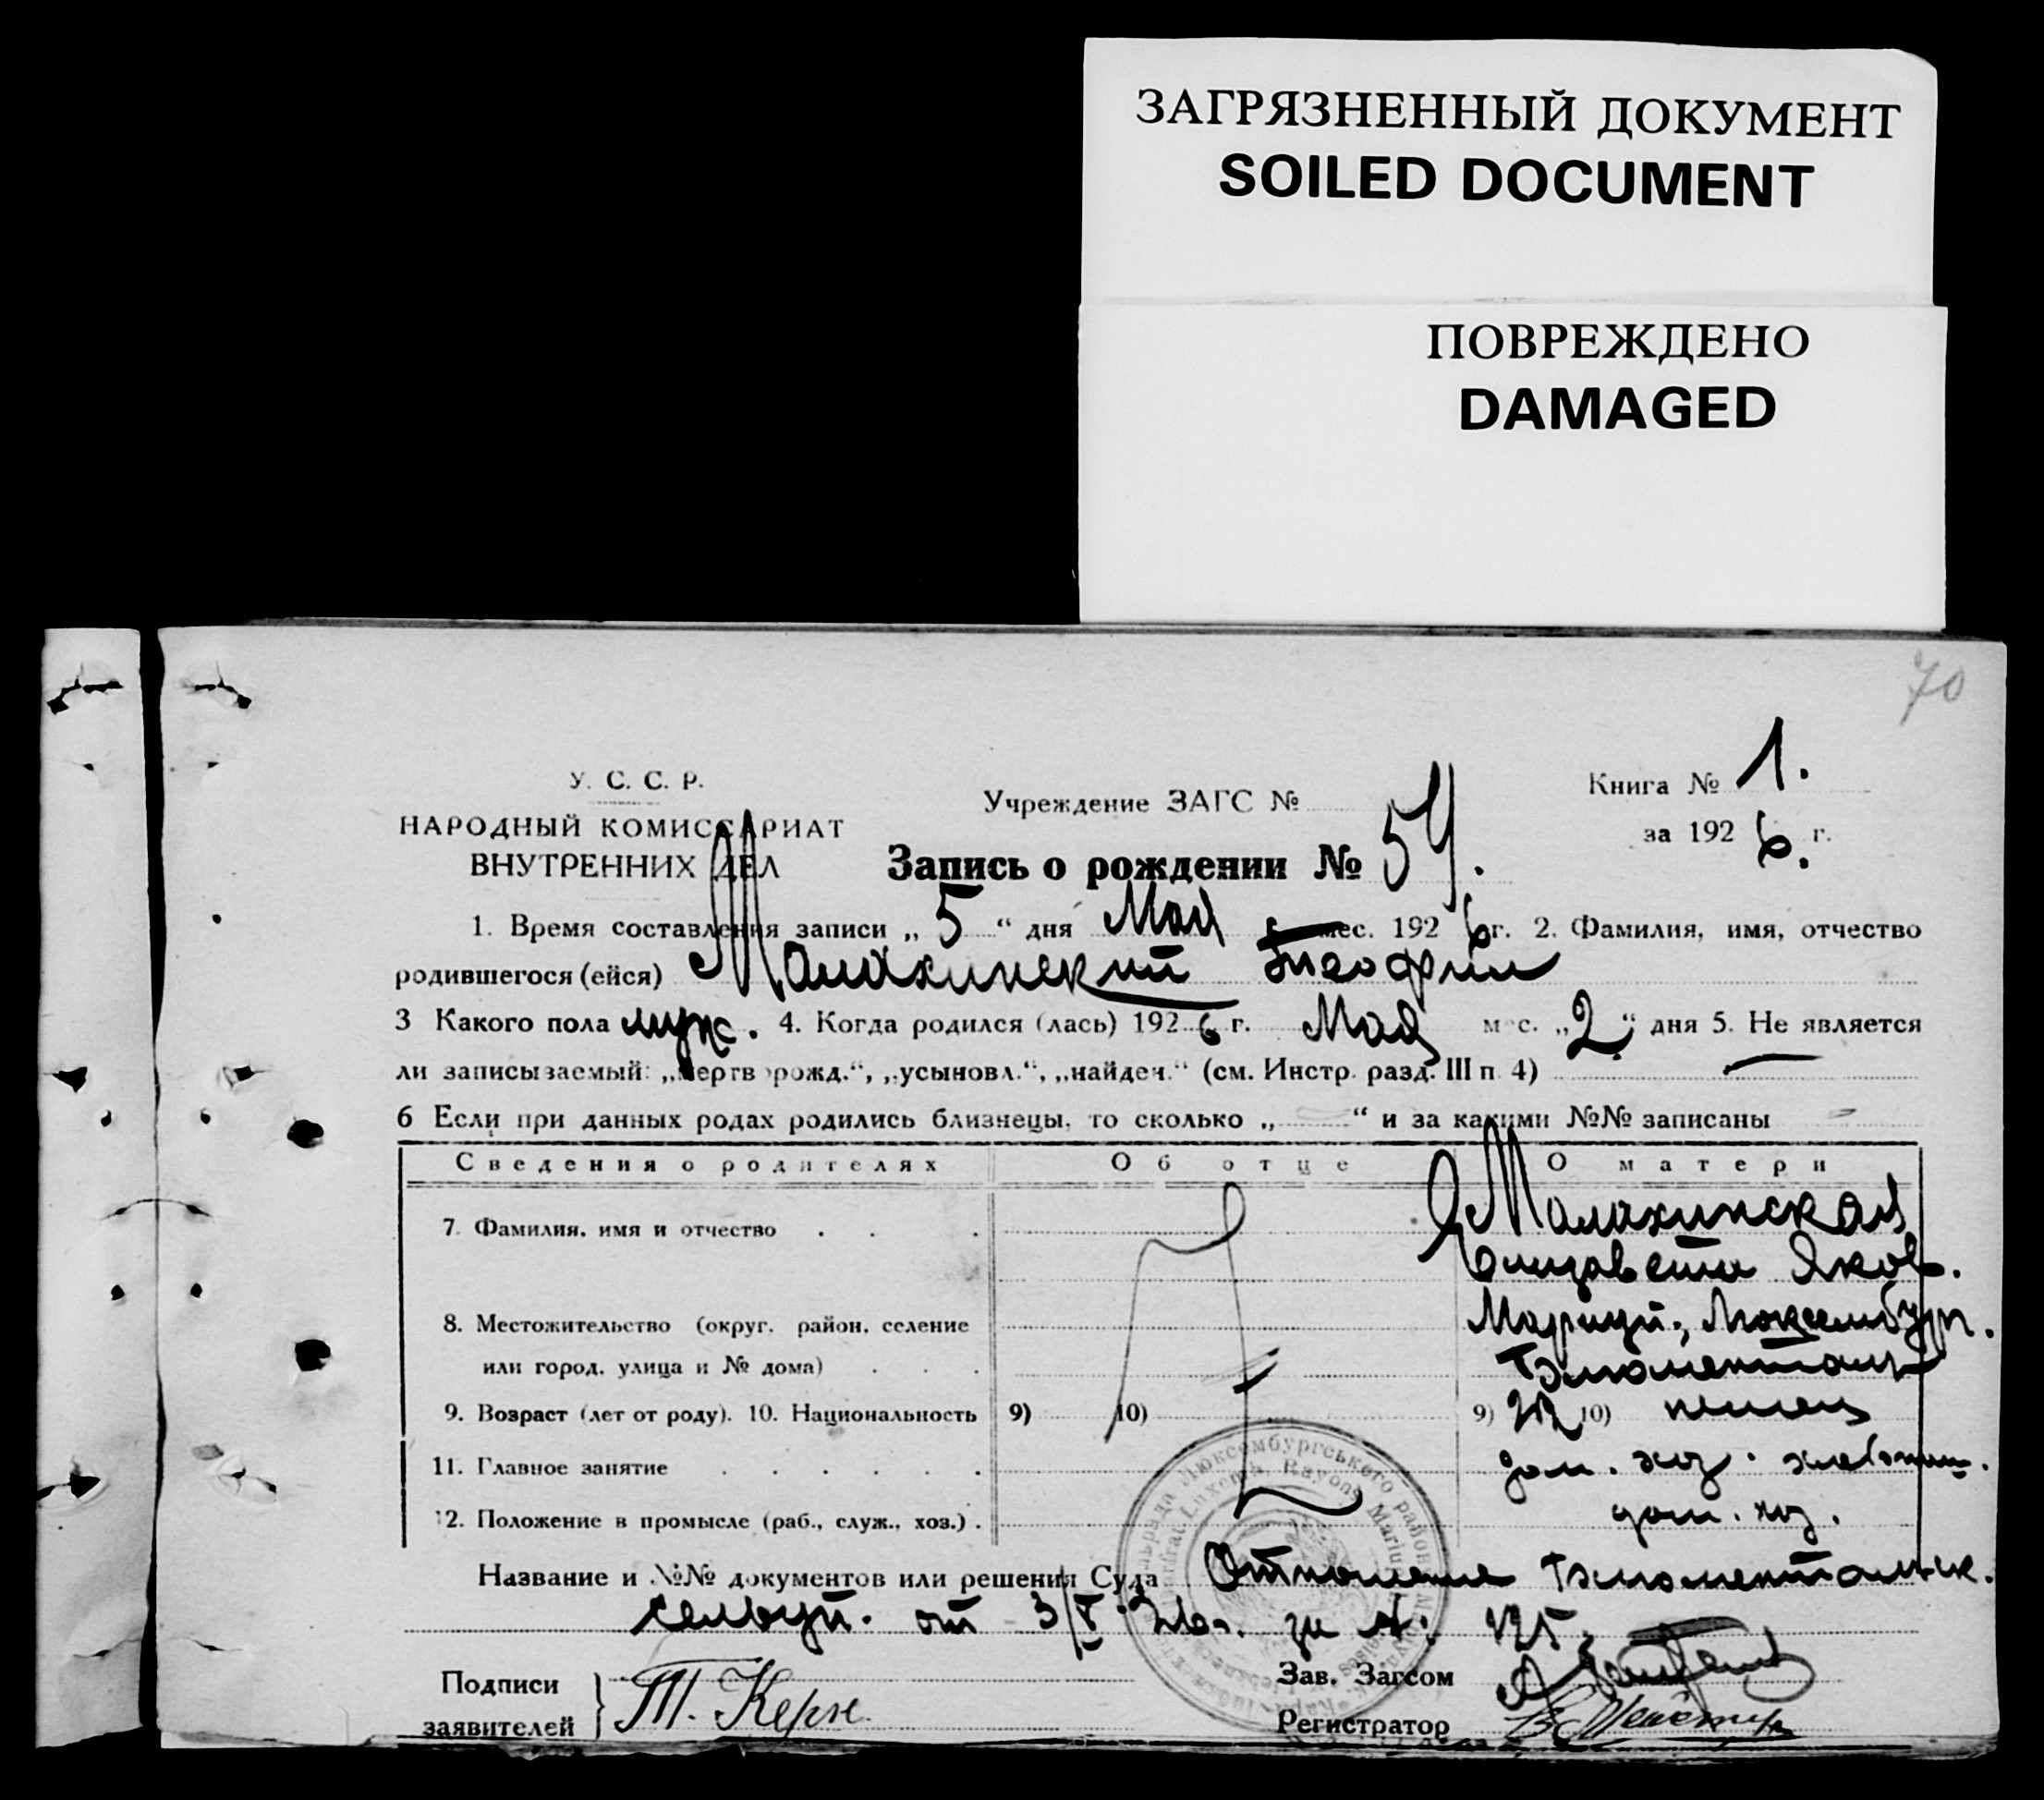 ЗАГРЯЗНЕННЫЙ ДОКУМЕНТ
SOILED DOCUMENT
ПОВРЕЖДЕНО
DAMAGED
70
У. С. С. Р.
НАРОДНЫЙ КОМИССАРИАТ
ВНУТРЕННИХ ДЕЛ
Учреждение ЗАГС №
Книга № 1.
за 1926 г.
Запись о рождении № 54.
1. Время составления записи „ 5 “ дня Мая мес. 1926 г. 2. Фамилия, имя, отчество
родившегося (ейся) Малахинский Теофил
3 Какого пола муж. 4. Когда родился (лась) 1926 г. Мая мес. „ 2 “ дня 5. Не является
ли записываемый: „мертворожд.“, „усыновл.“, „найден.“ (см. Инстр. разд. III п. 4)
6 Если при данных родах родились близнецы, то сколько „ “ и за какими №№ записаны
Сведения о родителях Об отце О матери
7. Фамилия, имя и отчество . . . Малахинская
Елизавета Яков.
8. Местожительство (округ, район, селение Мариуп., Люксембург.
или город, улица и № дома) . . . Блюменталь
9. Возраст (лет от роду). 10. Национальность 9) 10) 9) 10) немец
11. Главное занятие . . . . . . дом. хоз.
12. Положение в промысле (раб., служ., хоз.) . дом. хоз.
Название и №№ документов или решения Суда Отношение Блюментальск.
от 3/V 26 г. за №. 125.
Подписи
заявителей } Т. Керн
Зав. Загсом
Регистратор